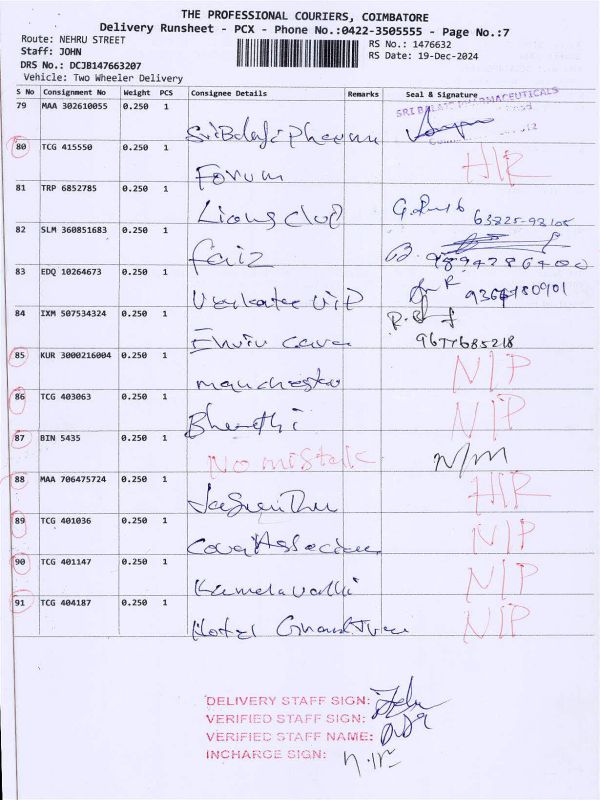 THE PROFESSIONAL COURIERS, COIMBATORE
Delivery Runsheet - PCX - Phone No.:0422-3505555 - Page No.:7
Route: NEHRU STREET RS No.: 1476632
Staff: JOHN RS Date: 19-Dec-2024
DRS No.: DCJB147663207
Vehicle: Two Wheeler Delivery
S No Consignment No Weight PCS Consignee Details Remarks Seal & Signature
79 MAA 302610055 0.250 1
SRI BALAJI PHARMACEUTICALS
Sri Balaji Pharma
80 TCG 415550 0.250 1
Forum HIR
81 TRP 6852785 0.250 1
Lions club 63825-93105
82 SLM 360851683 0.250 1
faiz 9894786400
83 EDQ 10264673 0.250 1
VIP
84 IXM 507534324 0.250 1
9677685218
85 KUR 3000216004 0.250 1
manchester NIP
86 TCG 403063 0.250 1
NIP
87 BIN 5435 0.250 1
No mistake N/M
88 MAA 706475724 0.250 1
HIR
89 TCG 401036 0.250 1
NIP
90 TCG 401147 0.250 1
Kamelavalli NIP
91 TCG 404187 0.250 1
Hotel NIP
DELIVERY STAFF SIGN:
VERIFIED STAFF SIGN:
VERIFIED STAFF NAME:
INCHARGE SIGN: